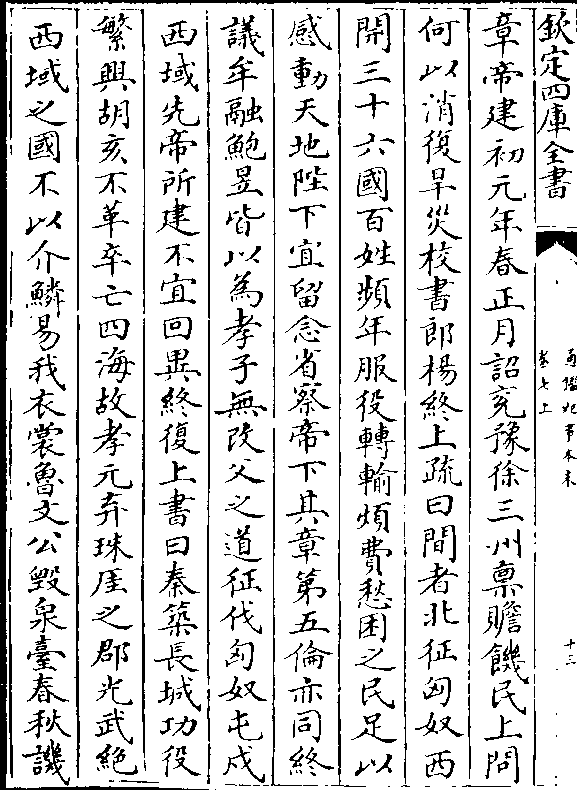 欽定四庫全書
通鑑紀事本末
卷七上
十三
章帝建初元年春正月詔兗豫徐三州禀贍饑民上問
何以消復旱災校書郎楊終上疏曰間者北征匈奴西
開三十六國百姓頻年服役轉輸煩費愁困之民足以
感動天地陛下宜留念省察帝下其章第五倫亦同終
議牟融鮑昱皆以為孝子無改父之道征伐匈奴屯戍
西域先帝所建不宜回異終復上書曰秦築長城功役
繁興胡亥不革卒亡四海故孝元弃珠厓之郡光武絶
西域之國不以介鱗易我衣裳魯文公毁泉臺春秋譏